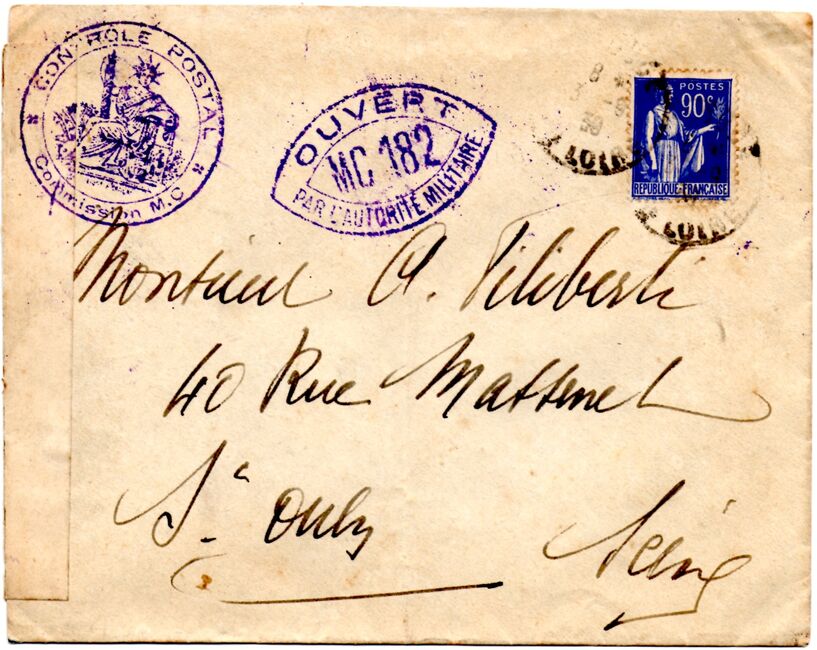 CONTRÔLE POSTAL
Commission M.C
OUVERT
MC 182
PAR L'AUTORITÉ MILITAIRE
POSTES
90c
RÉPUBLIQUE FRANÇAISE
LOIRE
LOIRE
Monsieur A. Filiberti
40 Rue Massenet
St Ouen
Seine